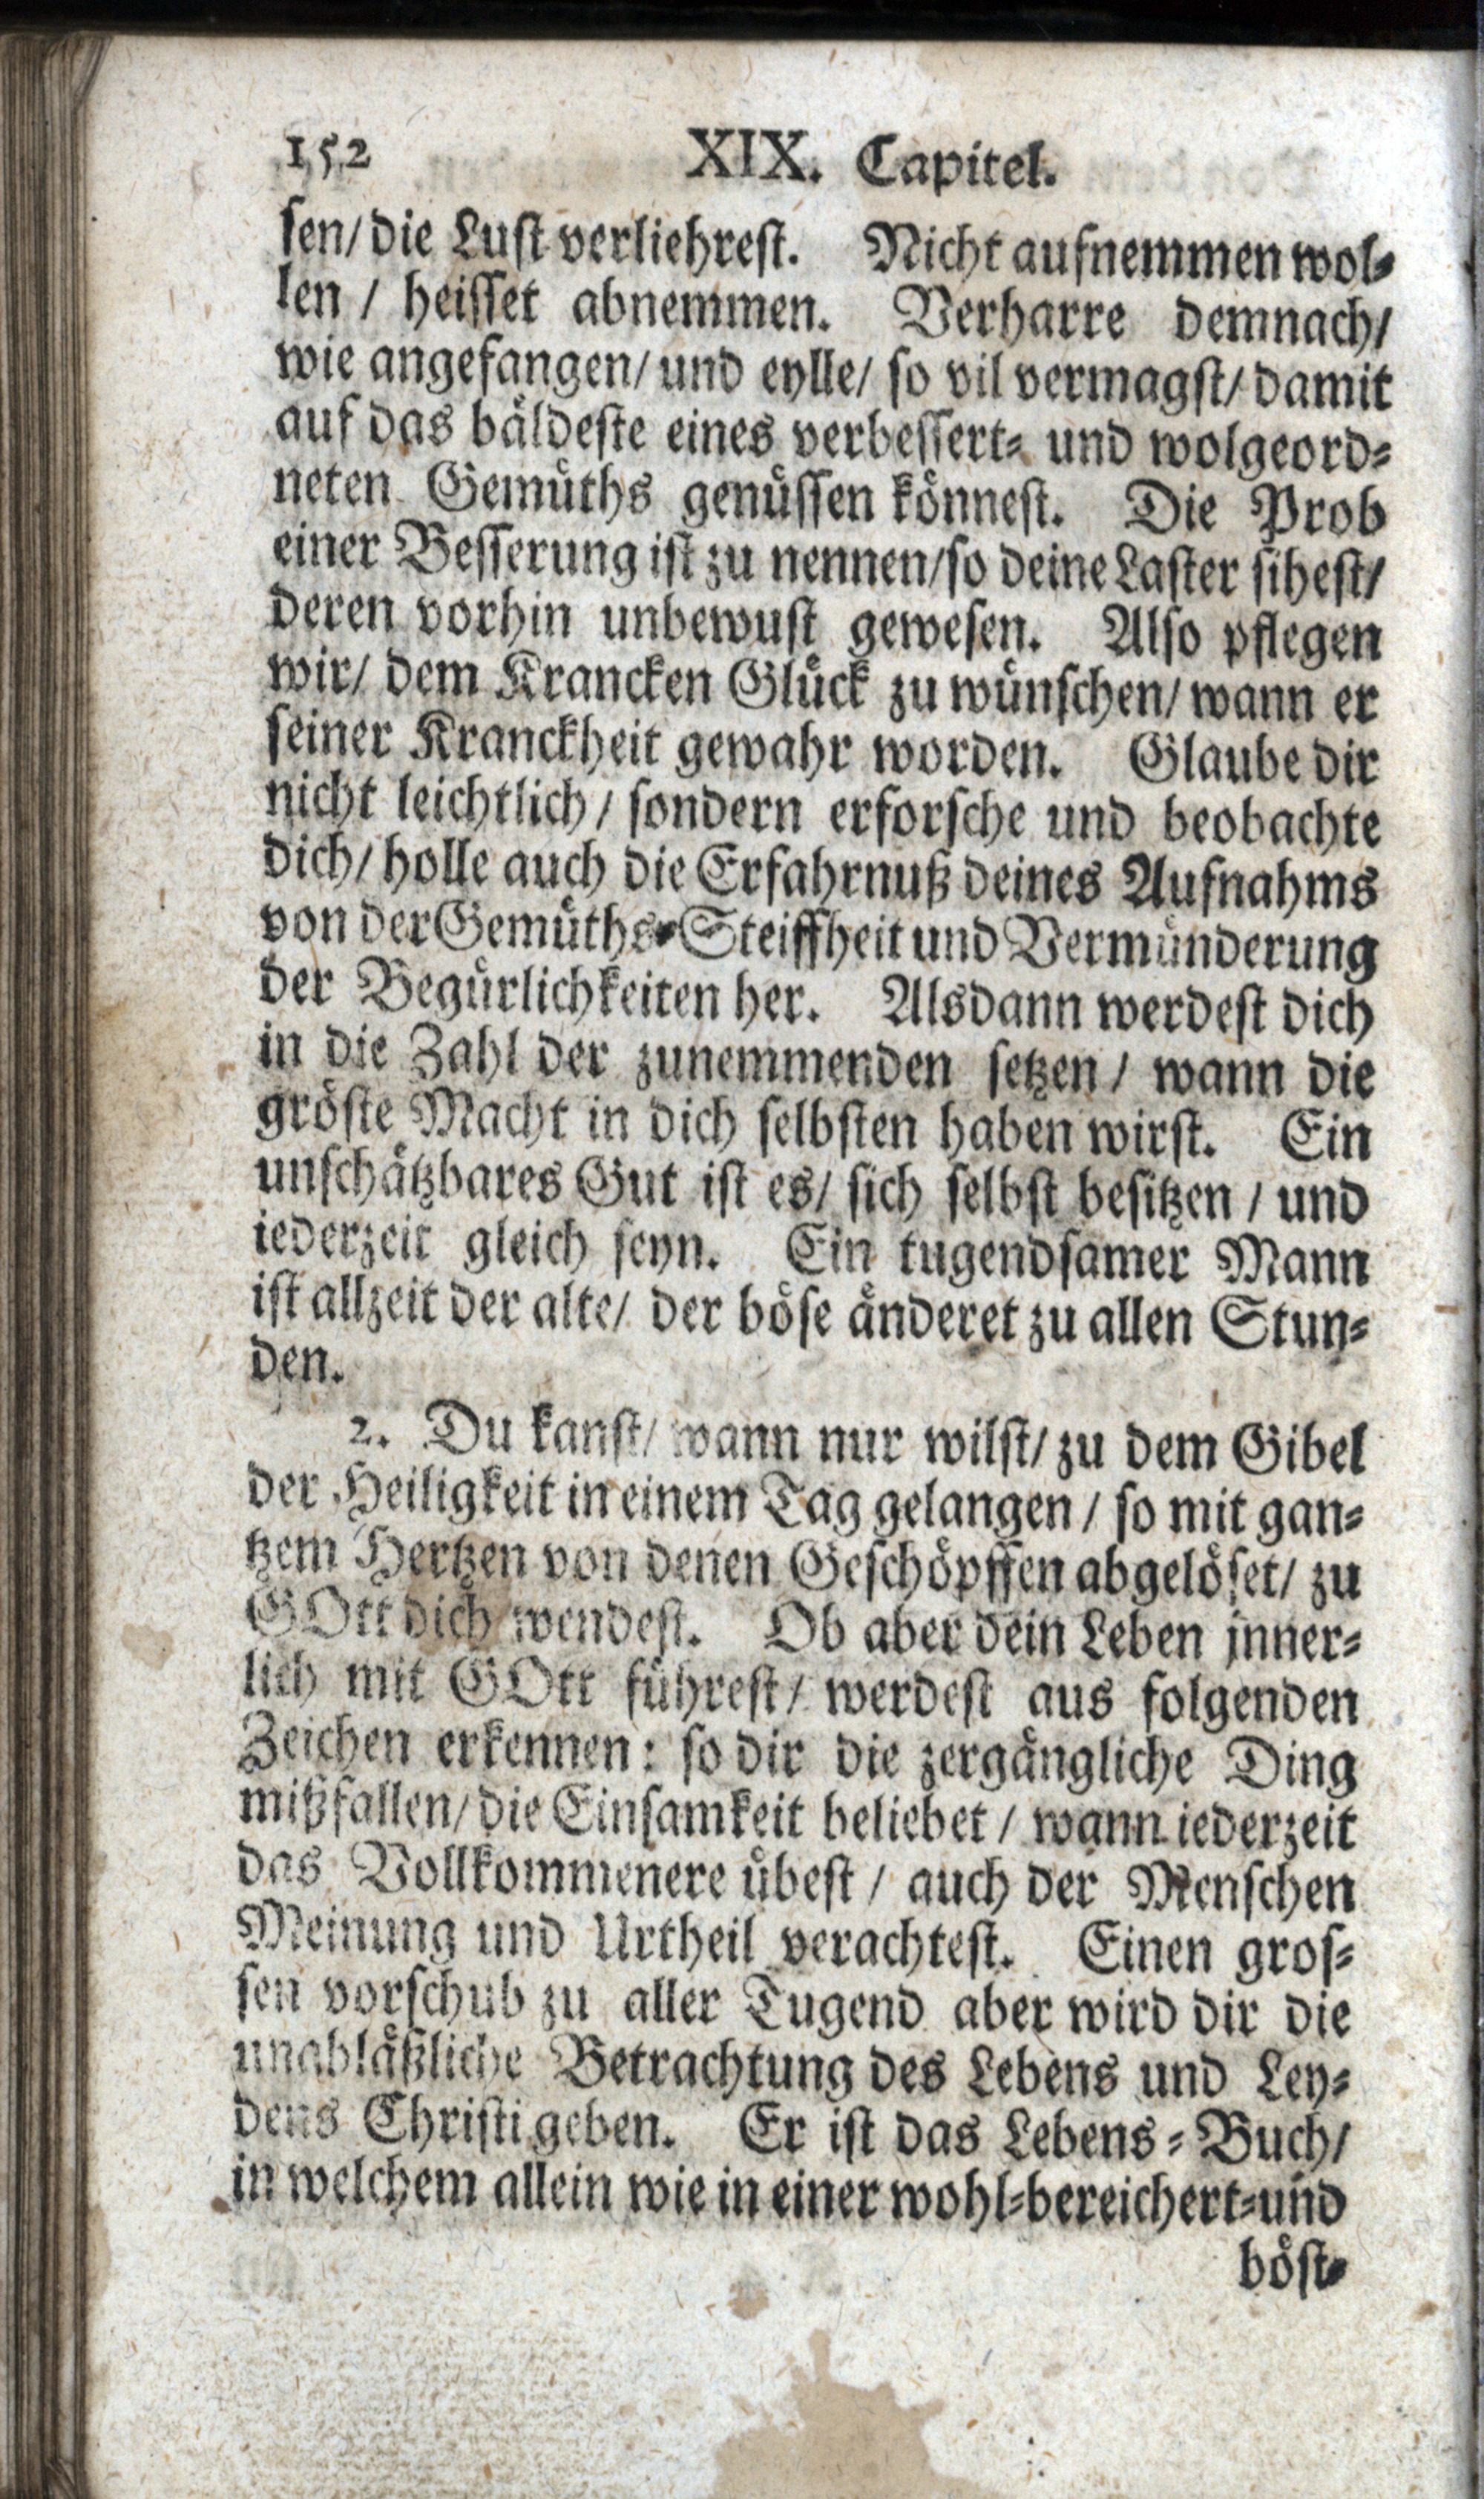 152 XIX. Capitel.
sen/ die Lust verliehrest. Nicht aufnemmen wol-
len / heisset abnemmen. Verharre demnach/
wie angefangen/ und eylle/ so vil vermagst/ damit
auf das bäldeste eines verbessert- und wolgeord-
neten Gemüths genüssen könnest. Die Prob
einer Besserung ist zu nennen/ so deine Laster sihest/
deren vorhin unbewust gewesen. Also pflegen
wir/ dem Krancken Glück zu wünschen/ wann er
seiner Kranckheit gewahr worden. Glaube dir
nicht leichtlich/ sondern erforsche und beobachte
dich/ holle auch die Erfahrnuß deines Aufnahms
von der Gemüths-Steiffheit und Vermünderung
der Begürlichkeiten her. Alsdann werdest dich
in die Zahl der zunemmenden setzen / wann die
gröste Macht in dich selbsten haben wirst. Ein
unschätzbares Gut ist es/ sich selbst besitzen / und
iederzeit gleich seyn. Ein tugendsamer Mann
ist allzeit der alte/ der böse änderet zu allen Stun-
den.
2. Du kanst/ wann nur wilst/ zu dem Gibel
der Heiligkeit in einem Tag gelangen / so mit gan-
tzem Hertzen von denen Geschöpffen abgelöset/ zu
GOtt dich wendest. Ob aber dein Leben inner-
lich mit GOtt führest/ werdest aus folgenden
Zeichen erkennen: so dir die zergängliche Ding
mißfallen/ die Einsamkeit beliebet / wann iederzeit
das Vollkommenere übest / auch der Menschen
Meinung und Urtheil verachtest. Einen gros-
sen vorschub zu aller Tugend aber wird dir die
unabläßliche Betrachtung des Lebens und Ley-
dens Christi geben. Er ist das Lebens-Buch/
in welchem allein wie in einer wohl-bereichert-und
böst-